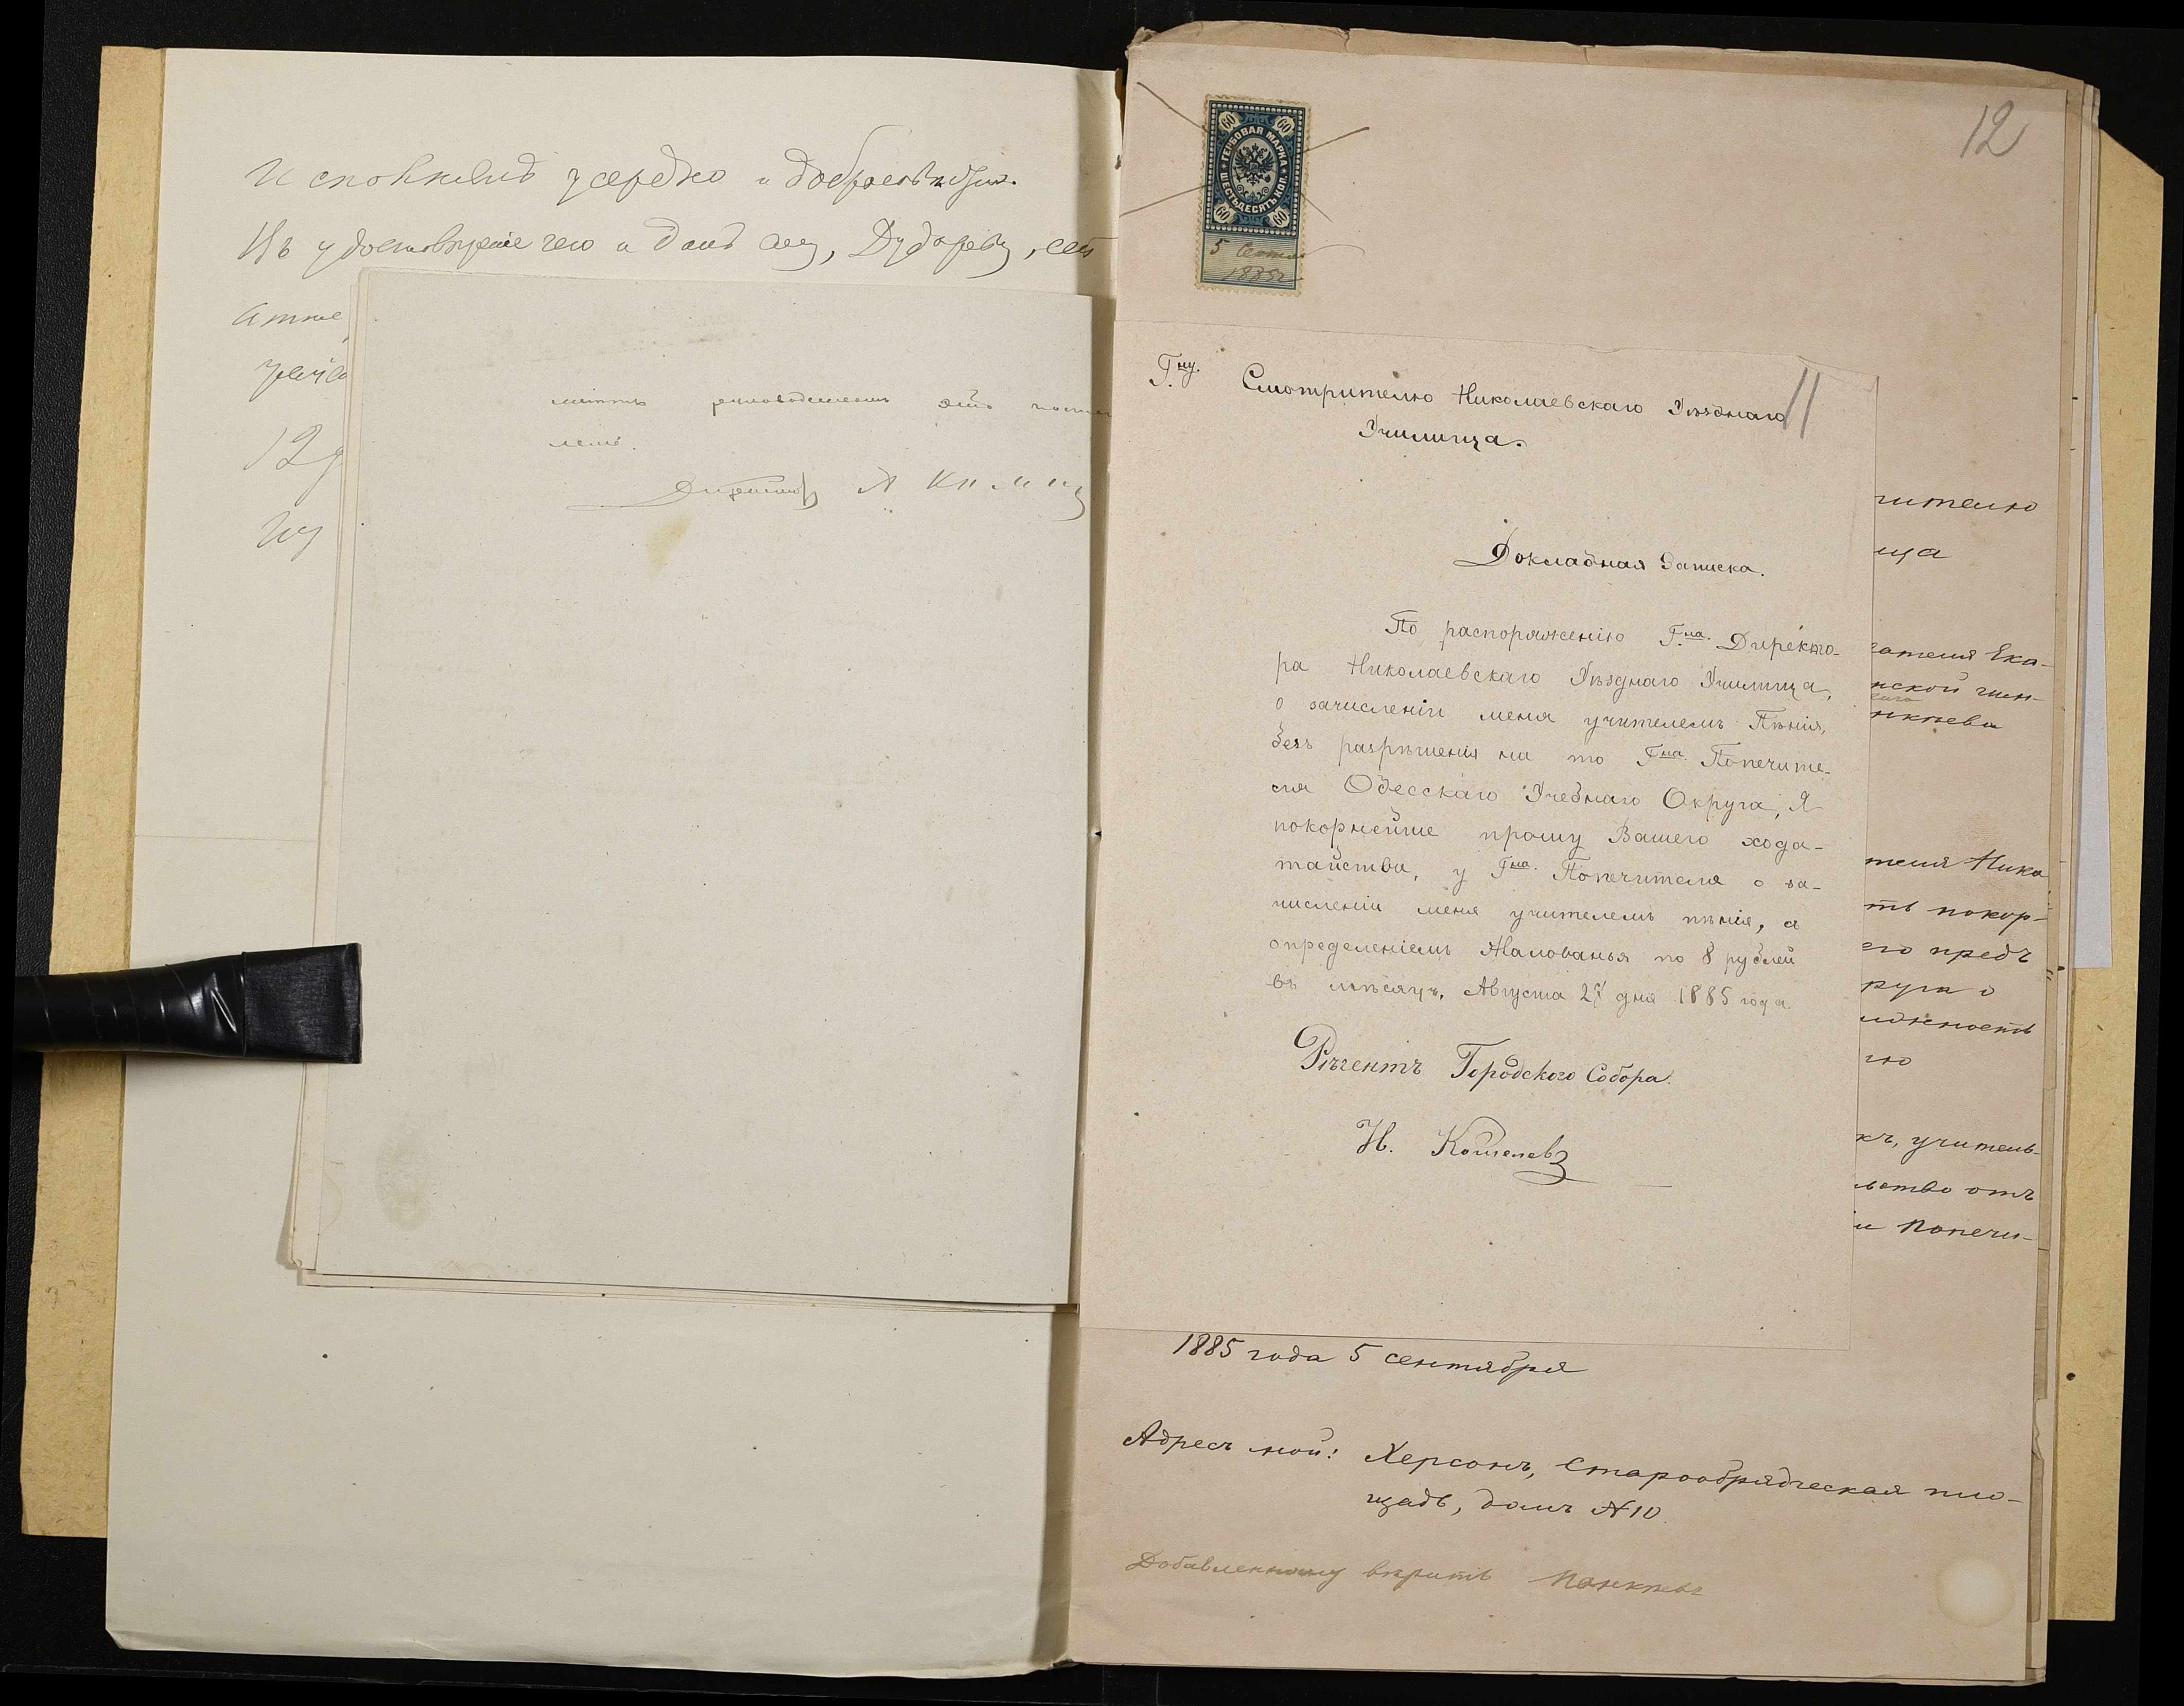 исполнялъ усердно и добросовѣстно.
Въ удостовѣреніе чего и данъ ему, Дудареву, сей
атте
12
лемъ.
Директоръ А
12
60 60
ГЕРБОВАЯ МАРКА
ШЕСТЬДЕСЯТЬ КОП.
60 60
5 Сентяб
1885г
11
Гну. Смотрителю Николаевскаго Уѣзднаго
Училища.
Докладная Записка.
По распоряженію Гна. Директо-
ра Николаевскаго Уѣзднаго Училища,
о зачисленіи меня учителемъ Пѣнія,
безъ разрѣшенія на то Гна. Попечите-
ля Одесскаго Учебнаго Округа, Я
покорнейше прошу Вашего хода-
тайства, у Гна. Попечителя о за-
численіи меня учителемъ пѣнія, с
определеніемъ Жалованья по 8 рублей
въ мѣсяцъ, Августа 27 дня 1885 года.
Рѣгентъ Городского Собора.
Н. Кошелевъ
чителю
ща
гателя Ека-
нской гим-
нкѣева
теля Нико
ть покор-
его предъ
руга о
олжность
ію
къ, учитель-
льство отъ
и Попечи-
1885 года 5 сентября
Адресъ мой: Херсонъ, Старообрядческая пло-
щадь, домъ №10
Добавленному вѣрить